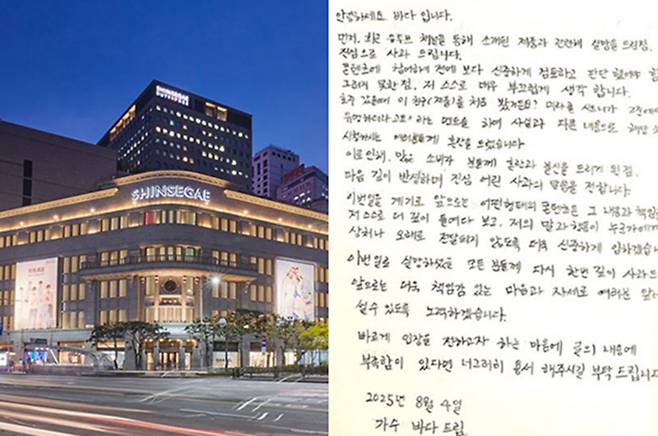 SHINSEGAE
SHINSEGAE
안녕하세요 바다 입니다.
먼저, 최근 유튜브 채널을 통해 소개된 제품과 관련해 실망을 드린점,
진심으로 사과 드립니다.
콘텐츠에 참여하기 전에 보다 신중하게 검토하고 판단 했어야
그러지 못한점, 저 스스로 매우 부끄럽게 생각 합니다.
호주 갔을때 이 (제품)을 처음 봤거든요?
라는 멘트를 하여 사실과 다른 내용으로 해당
시청하시는 여러분들께 혼란을 드렸습니다
이로인해, 많은 소비자 분들께 혼란과 불신을 드리게 된점,
마음 깊이 반성하며 진심 어린 사과의 말씀을 전합니다.
이번일을 계기로 앞으로는 어떤형태의 콘텐츠든 그 내용과 책임
저 스스로 더 깊이 들여다 보고, 저의 말과 행동이 누군가에게
상처나 오해로 전달되지 않도록 더욱 신중하게 임하겠습니
이번일로 실망하셨을 모든 분들께 다시 한번 깊이 사과드
앞으로는 더욱 책임감 있는 마음과 자세로 여러분 앞
설수 있도록 노력하겠습니다.
바르게 입장을 전하고자 하는 마음에 글의 내용에
부족함이 있다면 너그러히 용서 해주시길 부탁 드립니다
2025년 8월 4일
가수 바다 드림.